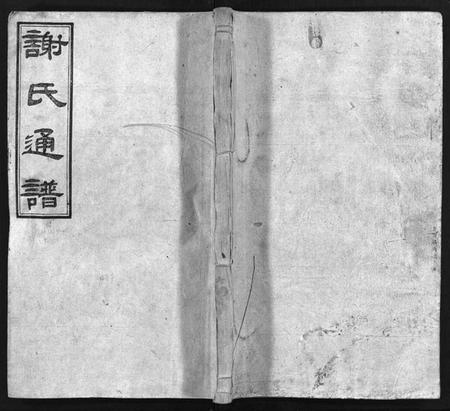 謝氏通譜